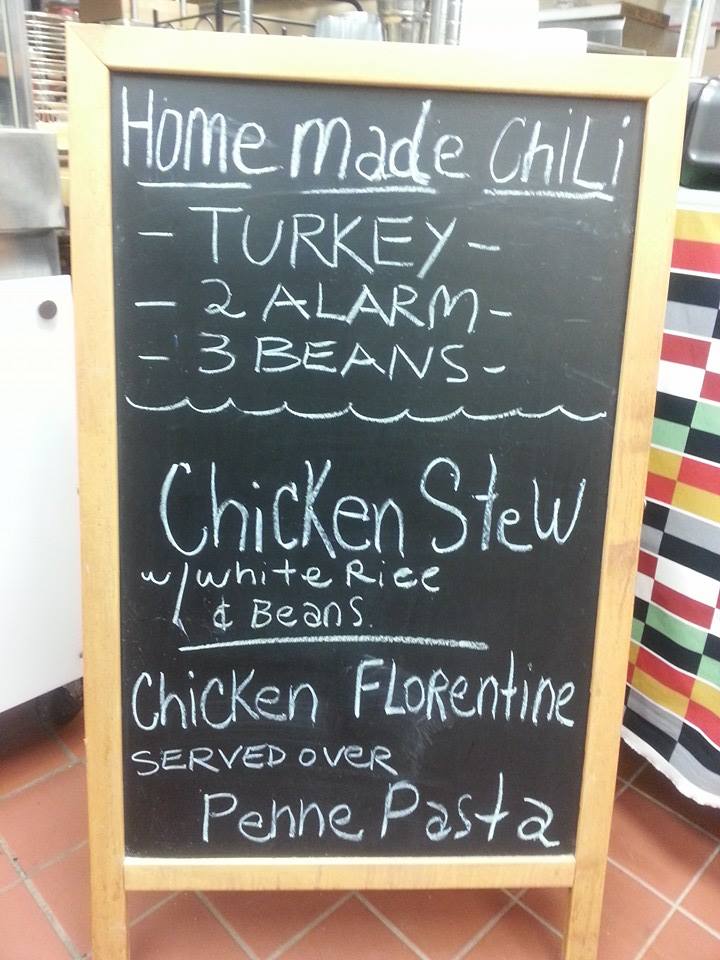 Homemade ChiLi
- TURKEY -
- 2 ALARM -
- 3 BEANS -
Chicken Stew
w/ white Rice
& Beans.
Chicken FLORentine
SERVED OVER
Penne Pasta